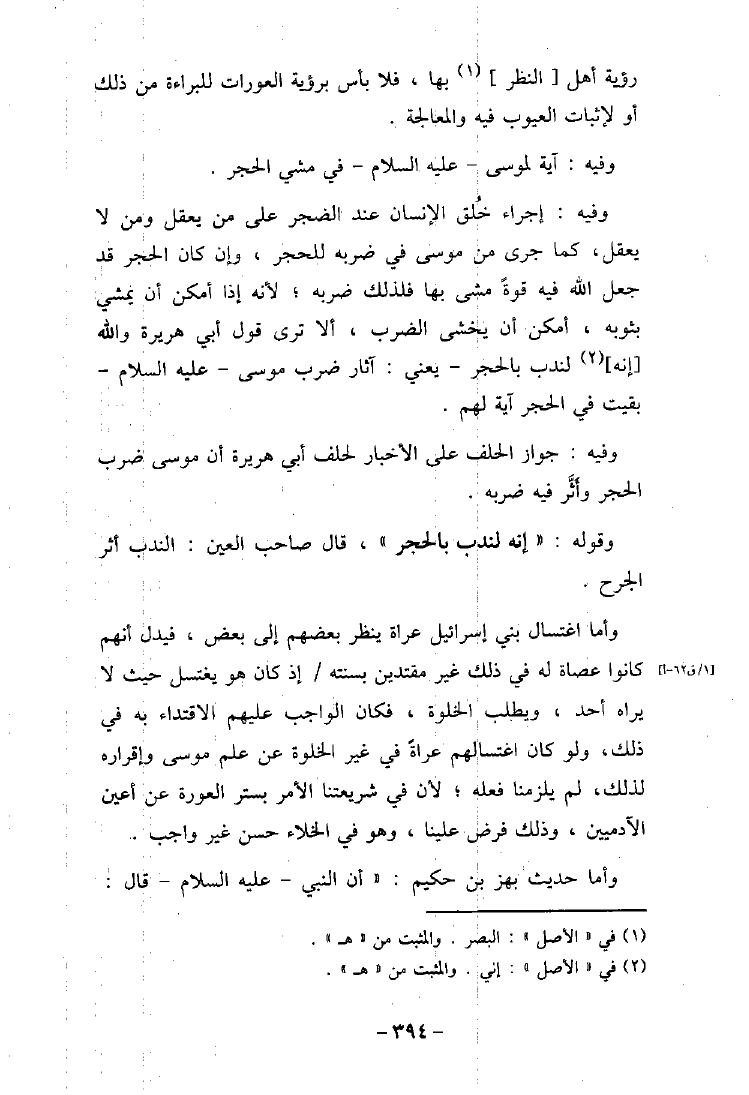 رؤية أهل [ النظر ] (١) بها ، فلا بأس برؤية العورات للبراءة من ذلك
أو لإثبات العيوب فيه والمعالجة .
وفيه : آية لموسى – عليه السلام – في مشي الحجر .
وفيه : إجراء خُلق الإنسان عند الضجر على من يعقل ومن لا
يعقل، كما جرى من موسى في ضربه للحجر ، وإن كان الحجر قد
جعل الله فيه قوةً مشى بها فلذلك ضربه ؛ لأنه إذا أمكن أن يمشي
بثوبه ، أمكن أن يخشى الضرب ، ألا ترى قول أبي هريرة والله
[إنه](٢) لندب بالحجر – يعني : آثار ضرب موسى – عليه السلام –
بقيت في الحجر آية لهم .
وفيه : جواز الحلف على الأخبار لحلف أبي هريرة أن موسى ضرب
الحجر وأثَّر فيه ضربه .
وقوله : « إنه لندب بالحجر » ، قال صاحب العين : الندب أثر
الجرح .
وأما اغتسال بني إسرائيل عراة ينظر بعضهم إلى بعض ، فيدل أنهم
كانوا عصاة له في ذلك غير مقتدين بسنته / إذ كان هو يغتسل حيث لا [١/ق٦٢-أ]
يراه أحد ، ويطلب الخلوة ، فكان الواجب عليهم الاقتداء به في
ذلك، ولو كان اغتسالهم عراةً في غير الخلوة عن علم موسى وإقراره
لذلك، لم يلزمنا فعله ؛ لأن في شريعتنا الأمر بستر العورة عن أعين
الآدميين ، وذلك فرض علينا ، وهو في الخلاء حسن غير واجب .
وأما حديث بهز بن حكيم : « أن النبي – عليه السلام – قال :
(١) في « الأصل » : البصر . والمثبت من « هـ » .
(٢) في « الأصل » : إني . والمثبت من « هـ » .
– ٣٩٤ –